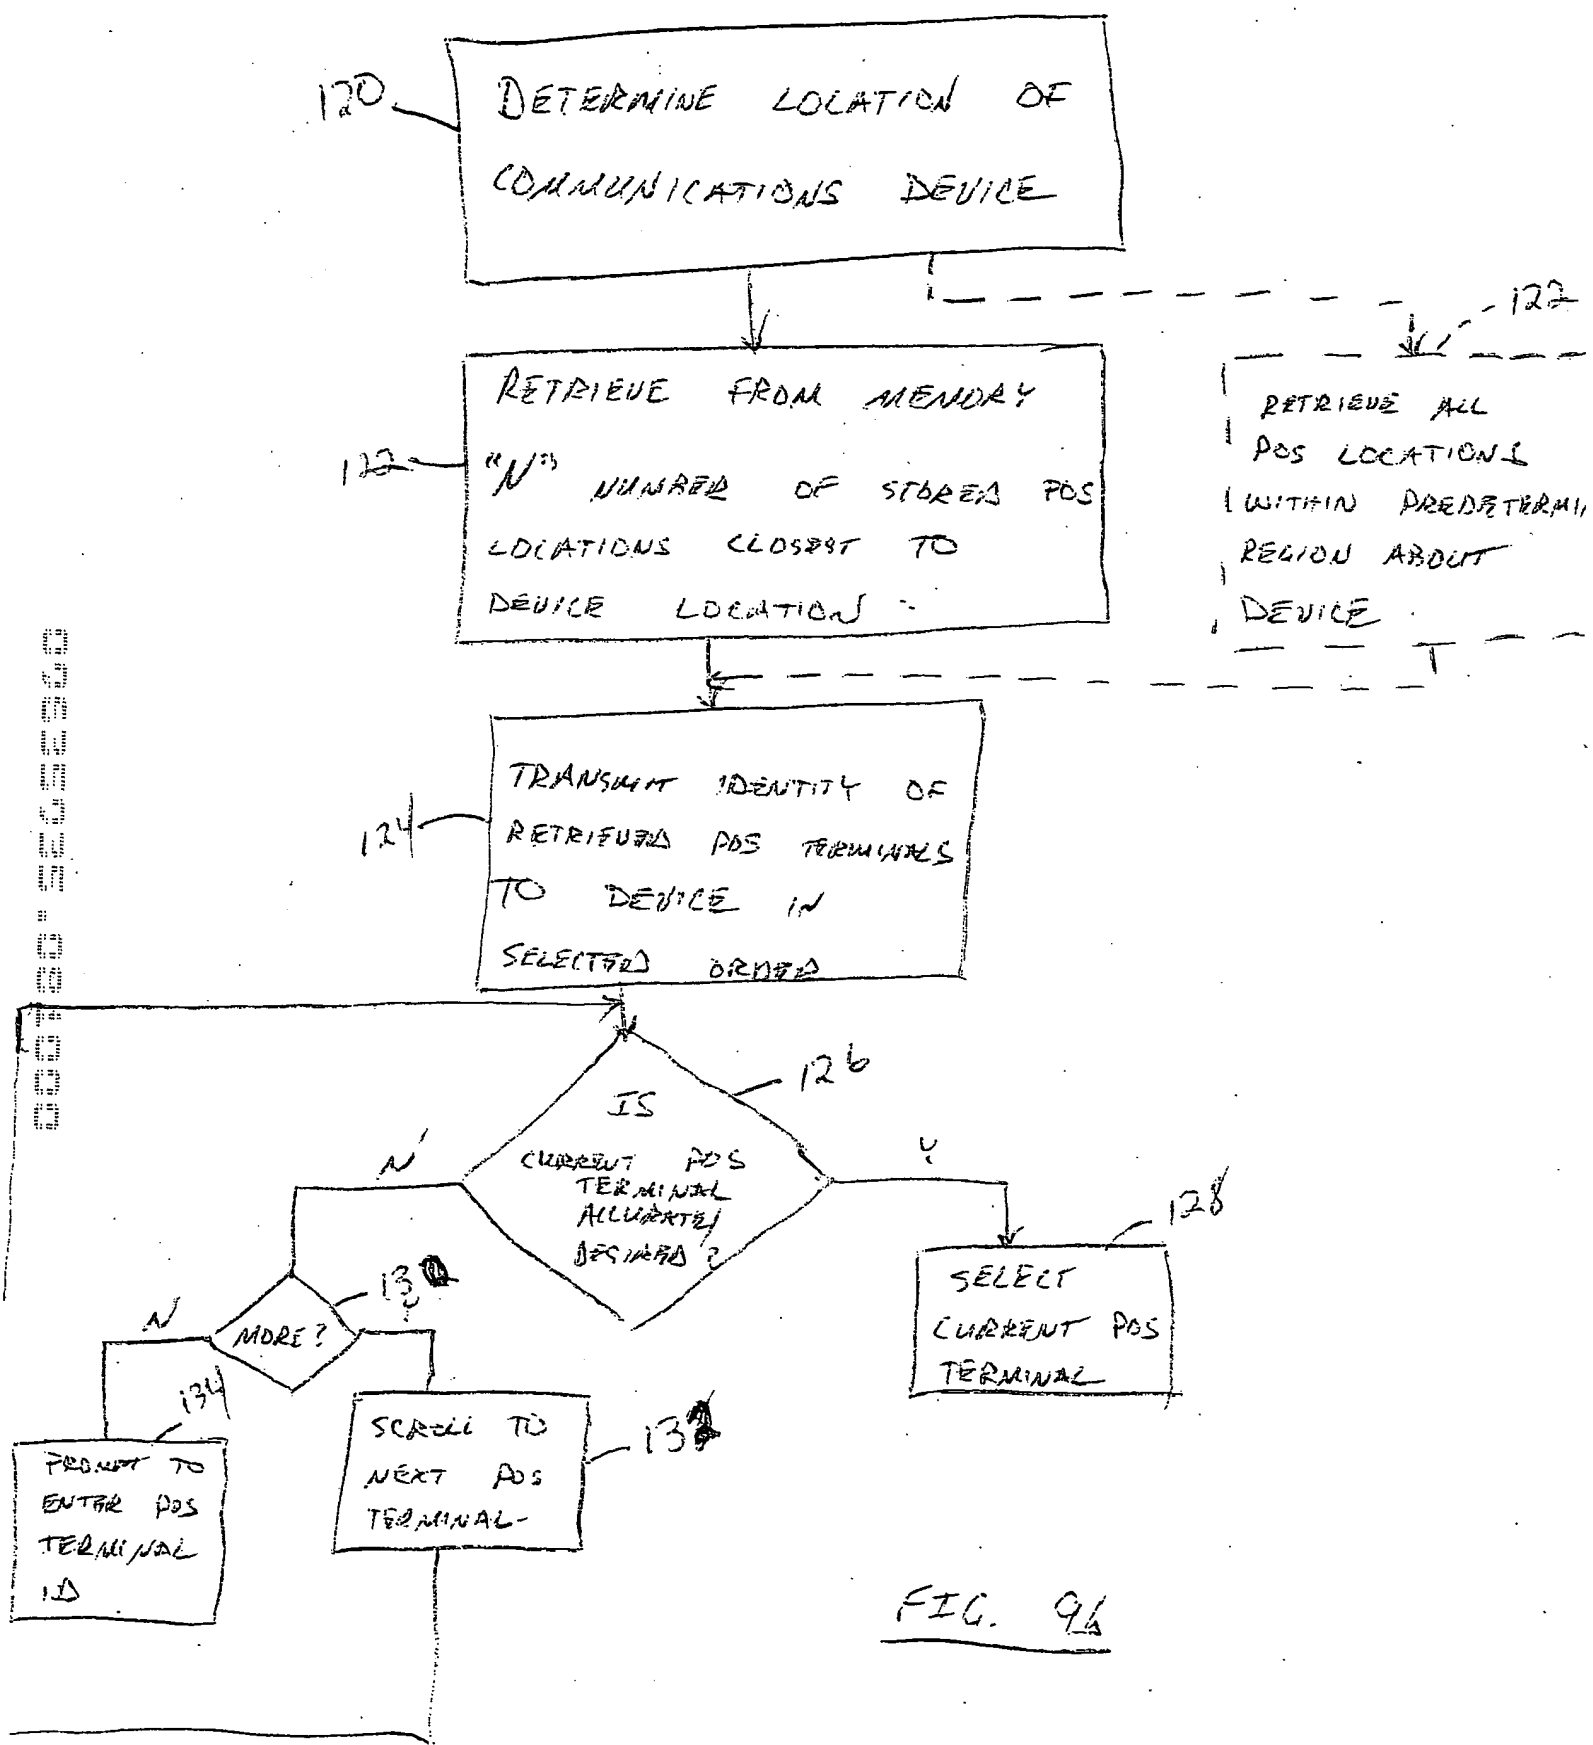 120
DETERMINE LOCATION OF
COMMUNICATIONS DEVICE
122
RETRIEVE FROM MEMORY
"N" NUMBER OF STORED POS
LOCATIONS CLOSEST TO
DEVICE LOCATION
122
RETRIEVE ALL
POS LOCATIONS
WITHIN PREDETERMI
REGION ABOUT
DEVICE
124
TRANSMIT IDENTITY OF
RETRIEVED POS TERMINALS
TO DEVICE IN
SELECTED ORDER
126
IS
CURRENT POS
TERMINAL
ACCURATE/
DESIRED?
N
Y
128
SELECT
CURRENT POS
TERMINAL
MORE?
N
Y
134
PROMPT TO
ENTER POS
TERMINAL
ID
SCROLL TO
NEXT POS
TERMINAL
FIG. 9b